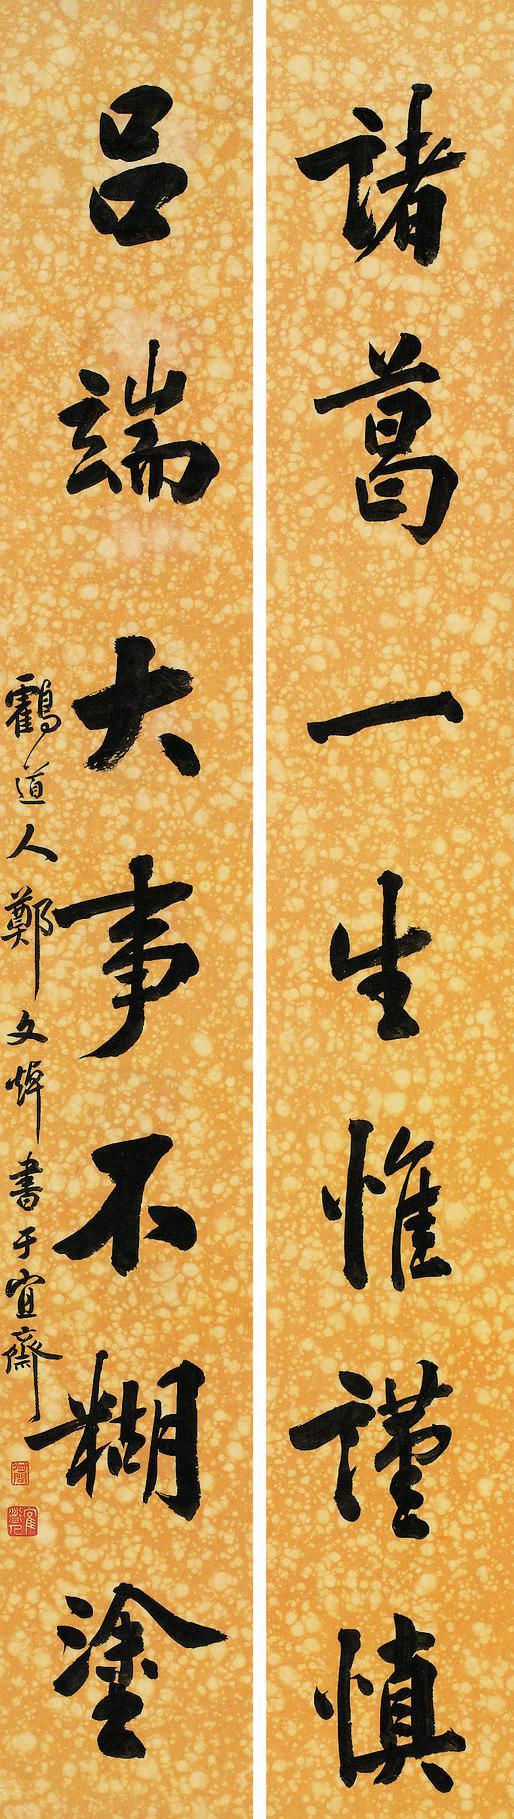 諸葛一生惟謹慎
呂端大事不糊塗
鶴道人鄭文焯書于宜齋